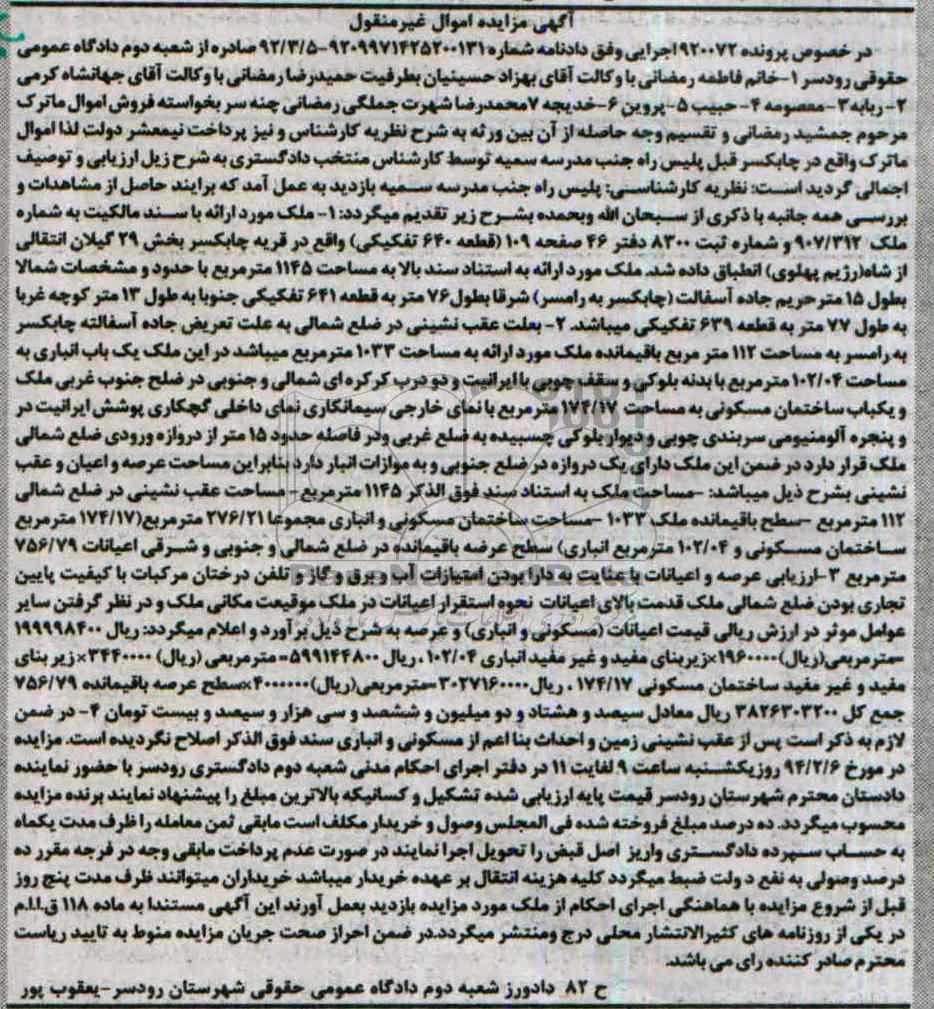 آگهی مزایده اموال غیرمنقول
در خصوص پرونده ۹۲۰۰۷۲ اجرایی وفق دادنامه شماره ۹۲۰۹۹۷۱۴۲۵۲۰۰۱۳۱-۹۲/۳/۵ صادره از شعبه دوم دادگاه عمومی
حقوقی رودسر ۱-خانم فاطمه رمضانی با وکالت آقای بهزاد حسینیان بطرفیت حمیدرضا رمضانی با وکالت آقای جهانشاه کرمی
۲- ربابه ۳-معصومه ۴- حبیب ۵-پروین ۶-خدیجه ۷محمدرضا شهرت جملگی رمضانی چنه سر بخواسته فروش اموال ماترک
مرحوم جمشید رمضانی و تقسیم وجه حاصله از آن بین ورثه به شرح نظریه کارشناس و نیز پرداخت نیمعشر دولت لذا اموال
ماترک واقع در چابکسر قبل پلیس راه جنب مدرسه سمیه توسط کارشناس منتخب دادگستری به شرح زیل ارزیابی و توصیف
اجمالی گردید است: نظریه کارشناسی: پلیس راه جنب مدرسه سمیه بازدید به عمل آمد که برایند حاصل از مشاهدات و
بررسی همه جانبه با ذکری از سبحان الله وبحمده بشرح زیر تقدیم میگردد: ۱- ملک مورد ارائه با سند مالکیت به شماره
ملک ۹۰۷/۳۱۲ و شماره ثبت ۸۳۰۰ دفتر ۴۶ صفحه ۱۰۹ (قطعه ۶۴۰ تفکیکی) واقع در قریه چابکسر بخش ۲۹ گیلان انتقالی
از شاه(رژیم پهلوی) انطباق داده شد. ملک مورد ارائه به استناد سند بالا به مساحت ۱۱۴۵ مترمربع با حدود و مشخصات شمالا
بطول ۱۵ متر حریم جاده آسفالت (چابکسر به رامسر) شرقا بطول ۷۶ متر به قطعه ۶۴۱ تفکیکی جنوبا به طول ۱۳ متر کوچه غربا
به طول ۷۷ متر به قطعه ۶۳۹ تفکیکی میباشد. ۲- بعلت عقب نشینی در ضلع شمالی به علت تعریض جاده آسفالته چابکسر
به رامسر به مساحت ۱۱۲ متر مربع باقیمانده ملک مورد ارائه به مساحت ۱۰۳۳ مترمربع میباشد در این ملک یک باب انباری به
مساحت ۱۰۲/۰۴ مترمربع با بدنه بلوکی و سقف چوبی با ایرانیت و دو درب کرکره ای شمالی و جنوبی در ضلع جنوب غربی ملک
و یکباب ساختمان مسکونی به مساحت ۱۷۴/۱۷ مترمربع با نمای خارجی سیمانکاری نمای داخلی گچکاری پوشش ایرانیت در
و پنجره آلومنیومی سربندی چوبی و دیوار بلوکی چسبیده به ضلع غربی ودر فاصله حدود ۱۵ متر از دروازه ورودی ضلع شمالی
ملک قرار دارد در ضمن این ملک دارای یک دروازه در ضلع جنوبی و به موازات انبار دارد بنابراین مساحت عرصه و اعیان و عقب
نشینی بشرح ذیل میباشد: -مساحت ملک به استناد سند فوق الذکر ۱۱۴۵ مترمربع- مساحت عقب نشینی در ضلع شمالی
۱۱۲ مترمربع -سطح باقیمانده ملک ۱۰۳۳ -مساحت ساختمان مسکونی و انباری مجموعا ۲۷۶/۲۱ مترمربع(۱۷۴/۱۷ مترمربع
ساختمان مسکونی و ۱۰۲/۰۴ مترمربع انباری) سطح عرضه باقیمانده در ضلع شمالی و جنوبی و شرقی اعیانات ۷۵۶/۷۹
مترمربع ۳-ارزیابی عرصه و اعیانات با عنایت به دارا بودن امتیازات آب و برق و گاز و تلفن درختان مرکبات با کیفیت پایین
تجاری بودن ضلع شمالی ملک قدمت بالای اعیانات نحوه استقرار اعیانات در ملک موقیعت مکانی ملک و در نظر گرفتن سایر
عوامل موثر در ارزش ریالی قیمت اعیانات (مسکونی و انباری) و عرصه به شرح ذیل برآورد و اعلام میگردد: ریال ۱۹۹۹۹۸۴۰۰
=مترمربعی(ریال)۱۹۶۰۰۰۰×زیربنای مفید و غیر مفید انباری ۱۰۲/۰۴ .ریال ۵۹۹۱۴۴۸۰۰= مترمربعی (ریال) ۳۴۴۰۰۰۰× زیر بنای
مفید و غیر مفید ساختمان مسکونی ۱۷۴/۱۷ . ریال۳۰۲۷۱۶۰۰۰۰=مترمربعی(ریال)۴۰۰۰۰۰۰×سطح عرصه باقیمانده ۷۵۶/۷۹
جمع کل ۳۸۲۶۳۰۳۲۰۰ ریال معادل سیصد و هشتاد و دو میلیون و ششصد و سی هزار و سیصد و بیست تومان ۴- در ضمن
لازم به ذکر است پس از عقب نشینی زمین و احداث بنا اعم از مسکونی و انباری سند فوق الذکر اصلاح نگردیده است. مزایده
در مورخ ۹۴/۲/۶ روزیکشنبه ساعت ۹ لغایت ۱۱ در دفتر اجرای احکام مدنی شعبه دوم دادگستری رودسر با حضور نماینده
دادستان محترم شهرستان رودسر قیمت پایه ارزیابی شده تشکیل و کسانیکه بالاترین مبلغ را پیشنهاد نمایند برنده مزایده
محسوب میگردد. ده درصد مبلغ فروخته شده فی المجلس وصول و خریدار مکلف است مابقی ثمن معامله را ظرف مدت یکماه
به حساب سپرده دادگستری واریز اصل قبض را تحویل اجرا نمایند در صورت عدم پرداخت مابقی وجه در فرجه مقرر ده
درصد وصولی به نفع دولت ضبط میگردد کلیه هزینه انتقال بر عهده خریدار میباشد خریداران میتوانند ظرف مدت پنج روز
قبل از شروع مزایده با هماهنگی اجرای احکام از ملک مورد مزایده بازدید بعمل آورند این آگهی مستندا به ماده ۱۱۸ ق.ا.ا.م
در یکی از روزنامه های کثیرالانتشار محلی درج ومنتشر میگردد.در ضمن احراز صحت جریان مزایده منوط به تایید ریاست
محترم صادر کننده رای می باشد.
ح ۸۲ دادورز شعبه دوم دادگاه عمومی حقوقی شهرستان رودسر-یعقوب پور